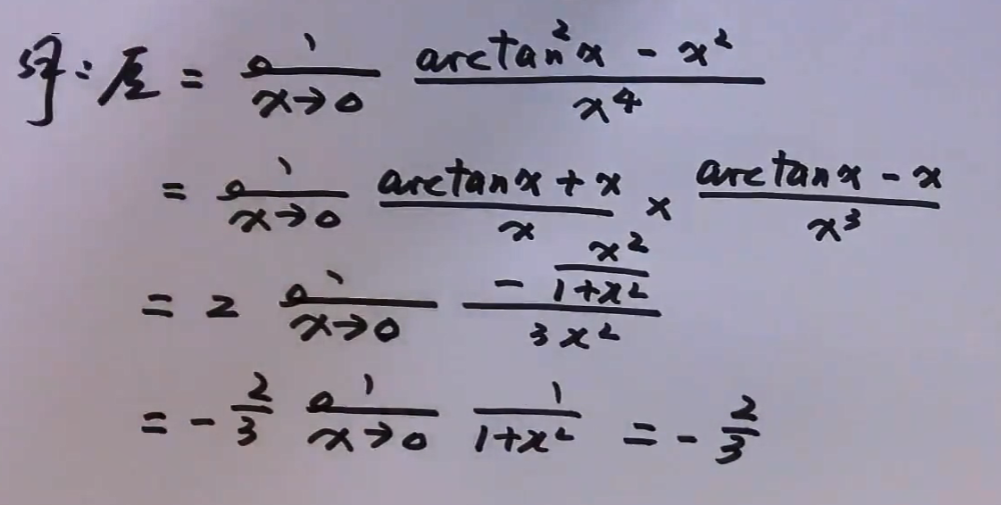 解:原 = lim x→0 (arctan²x - x²)/x⁴
= lim x→0 (arctanx + x)/x × (arctanx - x)/x³
= 2 lim x→0 (-x²/(1+x²))/(3x²)
= -2/3 lim x→0 1/(1+x²) = -2/3